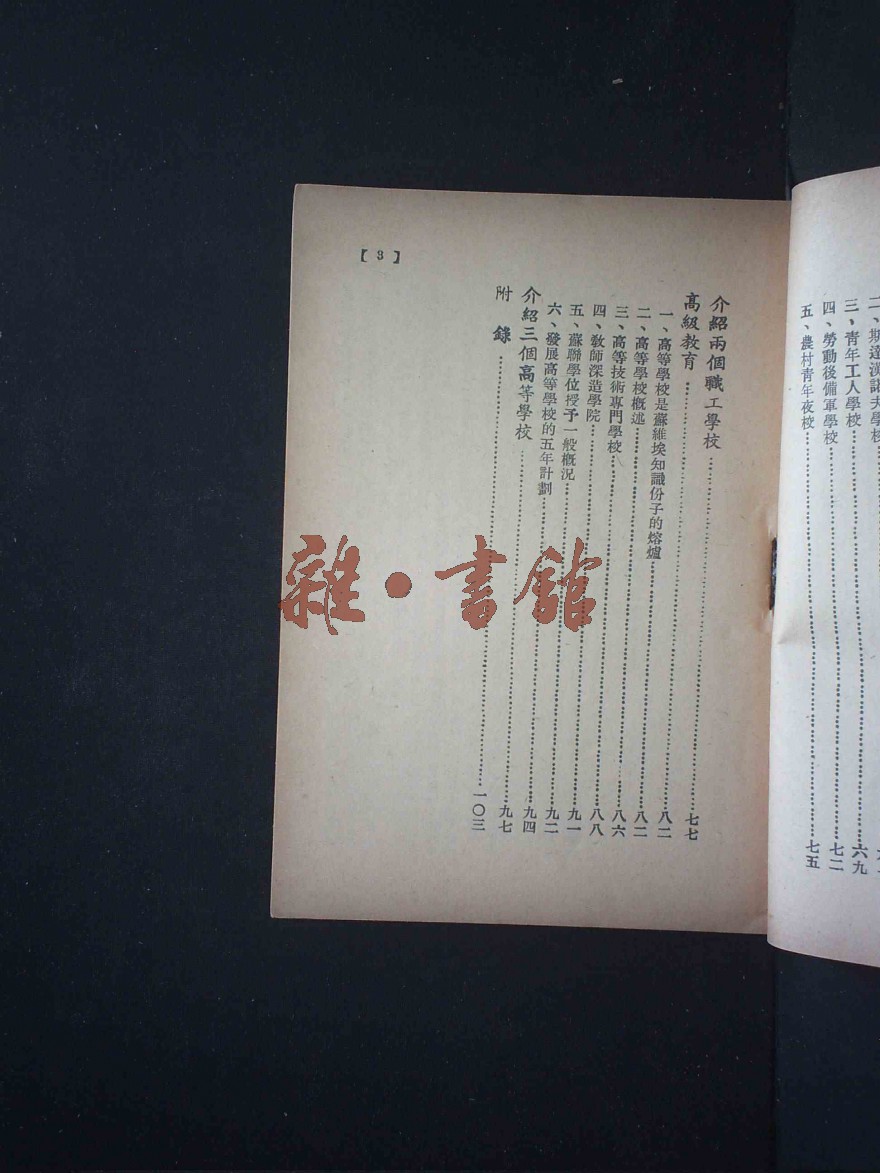 二、斯達漢諾夫學校
三、青年工人學校……六九
四、勞動後備軍學校……七二
五、農村青年夜校……七五
【3】
介紹兩個職工學校……七七
高級教育……八二
一、高等學校是蘇維埃知識份子的熔爐……八二
二、高等學校概述……八六
三、高等技術專門學校……八八
四、教師深造學院……九一
五、蘇聯學位授予一般概況……九二
六、發展高等學校的五年計劃……九四
介紹三個高等學校……九七
附錄……一〇三
雜·書館